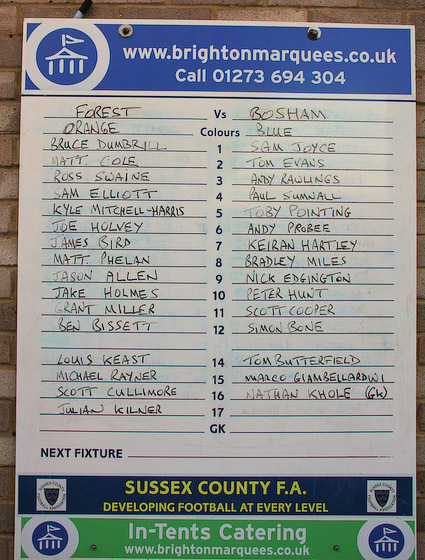 www.brightonmarquees.co.uk
Call 01273 694 304
FOREST Vs BOSHAM
ORANGE Colours BLUE
BRUCE DUMBRILL 1 SAM JOYCE
MATT. COLE 2 TOM EVANS
ROSS SWAINE 3 ANDY RAWLINGS
SAM ELLIOTT 4 PAUL SUMNALL
KYLE MITCHELL-HARRIS 5 TOBY POINTING
JOE HOLVEY 6 ANDY PROBEE
JAMES BIRD 7 KEIRAN HARTLEY
MATT. PHELAN 8 BRADLEY MILES
JASON ALLEN 9 NICK EDGINGTON
JAKE HOLMES 10 PETER HUNT
GRANT MILLER 11 SCOTT COOPER
BEN BISSETT 12 SIMON BONE
LOUIS KEAST 14 TOM BUTTERFIELD
MICHAEL RAYNER 15 MARCO GIAMBELLARDINI
SCOTT CULLIMORE 16 NATHAN KHOLE (GK)
JULIAN KILNER 17
GK
NEXT FIXTURE
SUSSEX COUNTY F.A.
DEVELOPING FOOTBALL AT EVERY LEVEL
In-Tents Catering
www.brightonmarquees.co.uk